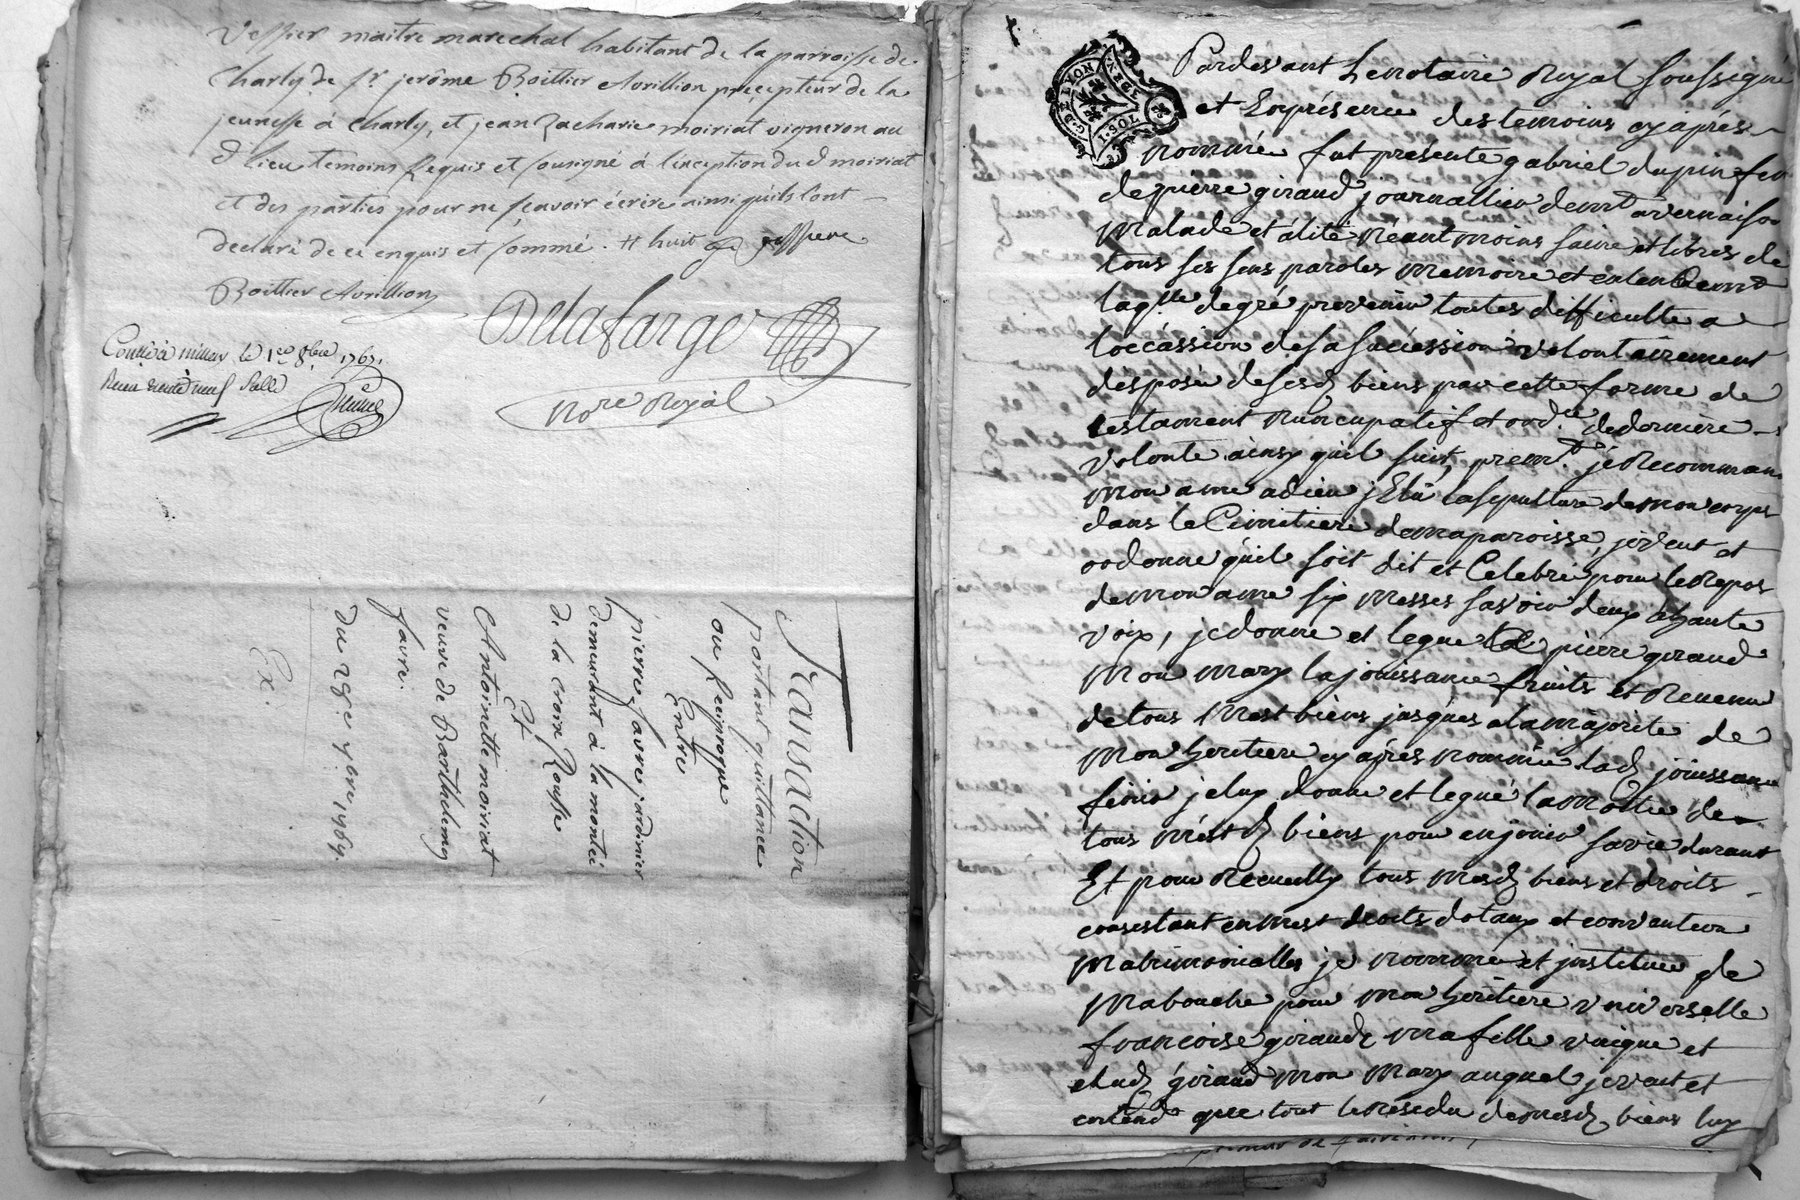 Vessier maitre marechal habitant de la parroisse de
Charly de Sr. jerôme Boittier Avrillion précepteur de la
jeunesse à Charly, et jean Zacharie moiriat vigneron au
d lieu temoins requis et sousigné à l'exception du d moiriat
et des parties pour ne sçavoir écrire ainsi quils l'ont
declaré de ce enquis et sommé. # huit
Boittier Avrillion
Delafarge
Nore Royal
Conllé à millery le 1er 8bre 1767.
Recu
Transaction
portant quittance
ou reciproque
Entre
pierre favre jardinier
demeurant à la montée
de la croix Rousse
Et
Antoinette moiriat
veuve de Barthelemy
favre.
Du 28e 7bre 1767
Ex.
G. DE LYON
Pardevant Le notaire Royal soussigné
et En présence des temoins cy après
nommé fut présente gabriel dupin fem
de pierre giraud journallier demt a vernaison
Malade et alité néantmoins saine et libres de
tous ses sens paroles memoire et entendemt
laqlle de gré prevenir toutes difficulté a
loccassion de sa succession volontairement
disposé de sesd biens par cette forme de
testament nuncupatif et ord.re de derniere
volonté ainsy quil suit, premt. je Recommande
mon ame a dieu j'Elû la sepulture de mon corps
dans le Cimitiere de ma paroisse, je veut et
ordonne quil soit dit et Celebré pour le Repos
de mon ame six messes savoir deux a haute
voix, je donne et legue a pierre giraud
Mon mary la jouissance fruits et Revenu
de tous mest biens jusques a la majorité de
Mon heritiere cy après nommée lad jouissance
finie je luy donne et legue la moitié de
tous mest d biens pour en jouir sa vie durant
Et pour Recueilly tous mesd biens et droits
consestant en mest droits dotaux et convention
matrimonialles je nomme et jnstitue de
Ma bouche pour mon heritiere universelle
francoise giraud ma fille unique et
giraud mon mary auquel je veut et
entend que tout le residu de mesd biens luy